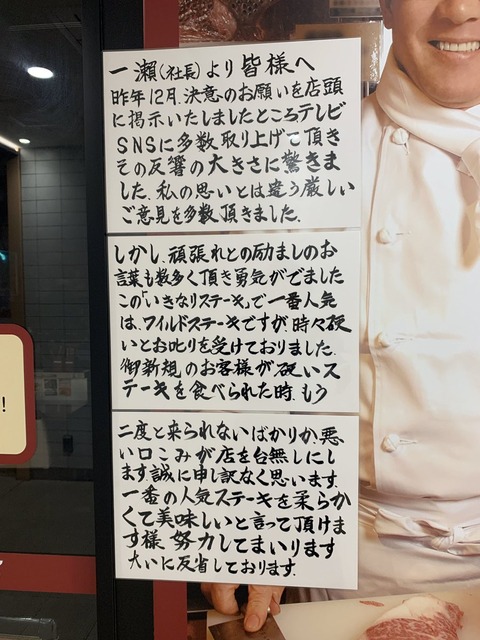 一瀬(社長)より皆様へ
昨年12月、決意のお願いを店頭
に掲示いたしましたところテレビ
SNSに多数取り上げて頂き
その反響の大きさに驚きま
した。私の思いとは違う厳しい
ご意見を多数頂きました。
しかし、頑張れとの励ましのお
言葉も数多く頂き勇気がでました
この「いきなりステーキ」で一番人気
は、ワイルドステーキですが、時々硬
いとお叱りを受けておりました。
御新規のお客様が、硬いス
テーキを食べられた時、もう
二度と来られないばかりか、悪
い口こみが店を台無しにし
ます。誠に申し訳なく思います。
一番の人気ステーキを柔らか
くて美味しいと言って頂けま
す様、努力してまいります
大いに反省しております。
!